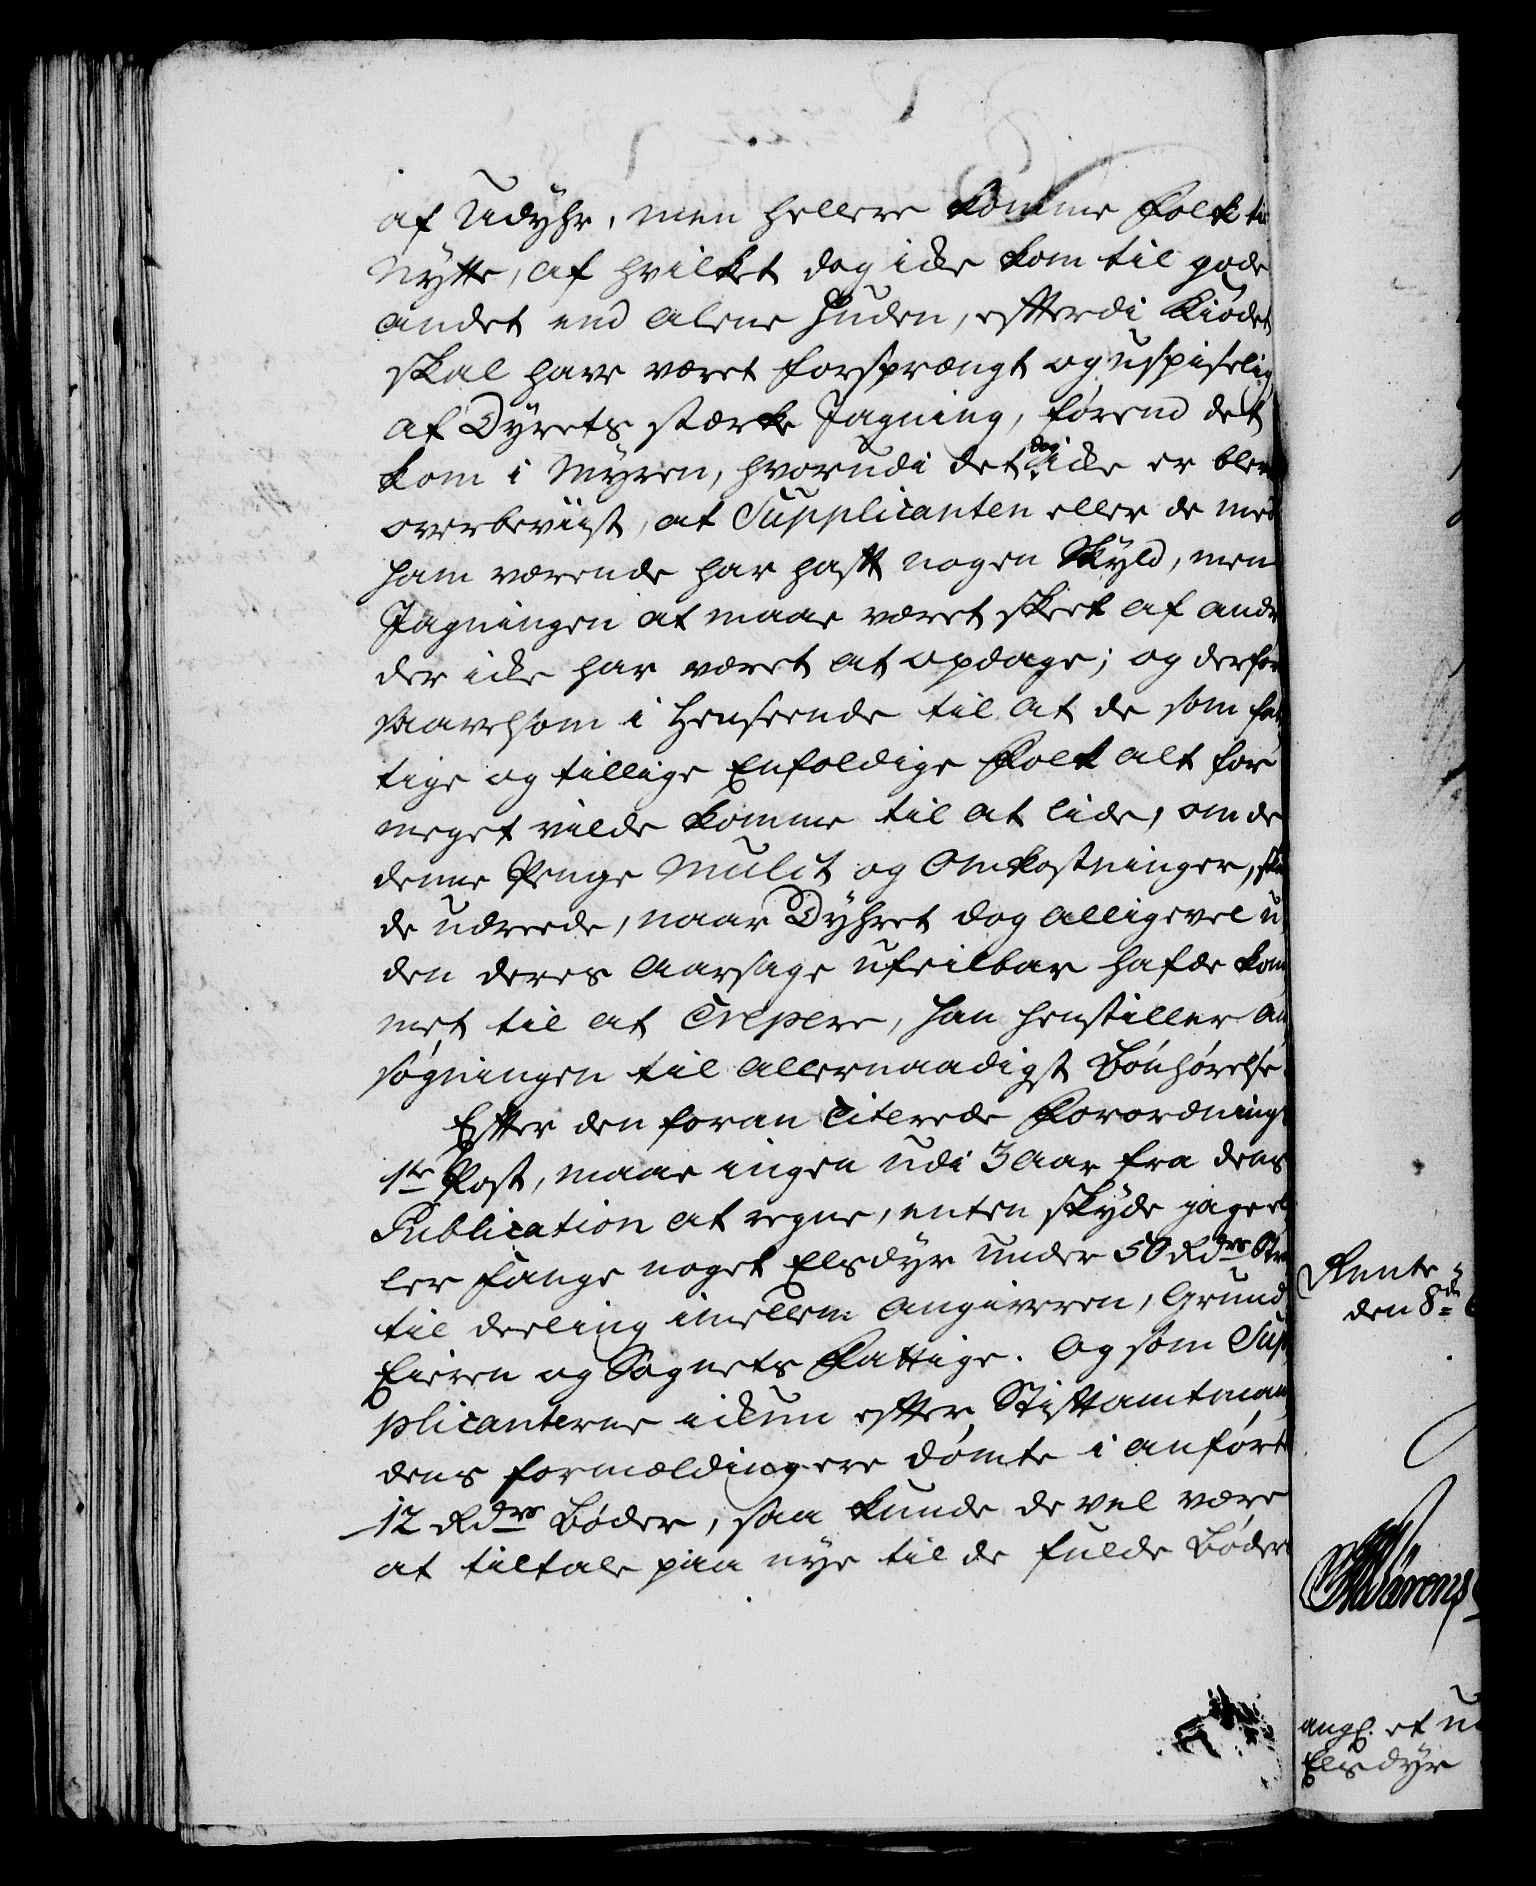 af Udÿhr, men hellere komme Folk til
Nÿtte, af hvilket dog icke kom til gode
andet end alene Huden, efterdi Kiødet
skal have været forsprængt og uspiselig
af Dÿrets stærke Jagning, førend det
kom i Mÿren, hvorudi det dog icke er blev
overbeviist, at Supplicanten eller de med
ham værende har haft nogen Skÿld, men
Jagningen at maae været skeet af andre
der icke har været at opdage; og derfor
saavelsom i Henseende til at de som fat
tige og tillige Enfoldige Folk alt for
meget vilde komme til at lide, om de
denne Penge Mulct og Omkostninger, skul
de udreede, naar Dÿhret dog alligevel u
den deres Aarsage ufeilbar hafde kom
met til at Crepere, han henstiller An
søgningen til allernaadigst Bønhørelse.
Efter den foran Citerede Forordnings
1te Post, maae ingen udi 3 Aar fra dens
Publication at regne, enten skÿde jage el
ler fange noget Elsdÿr under 50 Rdrs Straf
til deeling imellem Angiveren, Grund
Eieren og Sognets Fattige. Og som Sup
plicanterne ickun efter Stiftamtman
dens formælding ere dømte i anførte
12 Rdrs Bøder, saa kunde de vel være
at tiltale paa nye til de fulde Bøder
Rente-
den 8de
angl. et U
Elsdÿr